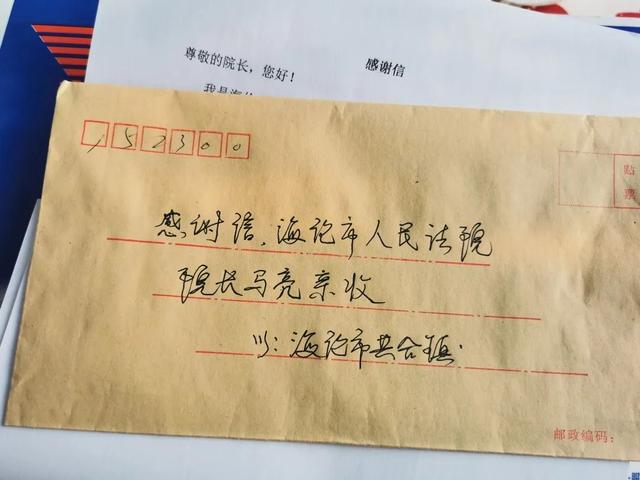 感谢信
尊敬的院长，您好！
152300
贴
票
感谢信.海伦市人民法院
院长马亮亲收
海伦市共合镇.
邮政编码：